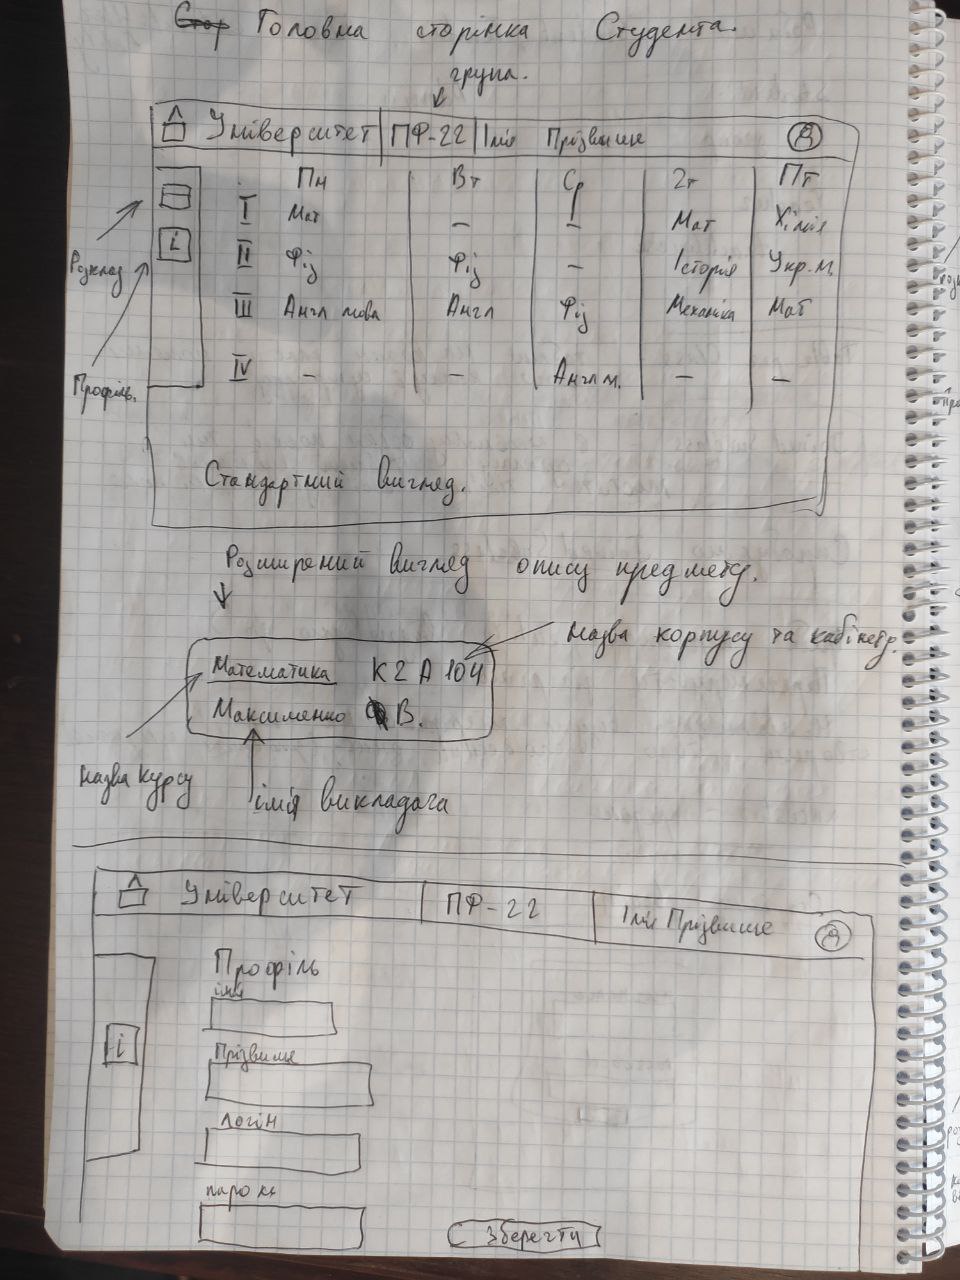 Головна сторінка Студента.
група.
Університет ПФ-22 Імя Прізвище
Пн Вт Ср Чт Пт
I Мат — — Мат Хімія
II Фіз Фіз — Історія Укр.м.
III Англ мова Англ Фіз Механіка Мат
IV — — Англ м. — —
Розклад
Профіль.
Стандартний вигляд.
Розширений вигляд опису предмету.
Назва корпусу та кабінету.
Математика К2 А 104
Максименко В.
Назва курсу
імя викладача
Університет ПФ-22 Імя Прізвище
i
Профіль
імя
Прізвище
логін
пароль
Зберегти